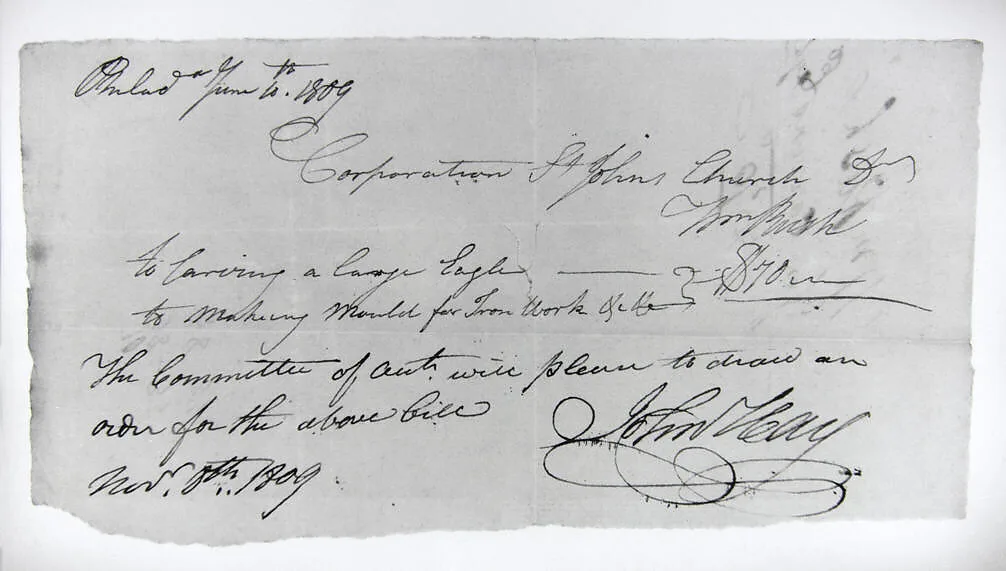 Philad.ᵃ June 10.th 1809
Corporation St Johns Church Dr
Wm Rush
to Carving a large Eagle — $70
to Making Mould for Iron Work &c
The Committee of Acct. will please to draw an
order for the above bill
Nov. 8th. 1809
John Hay